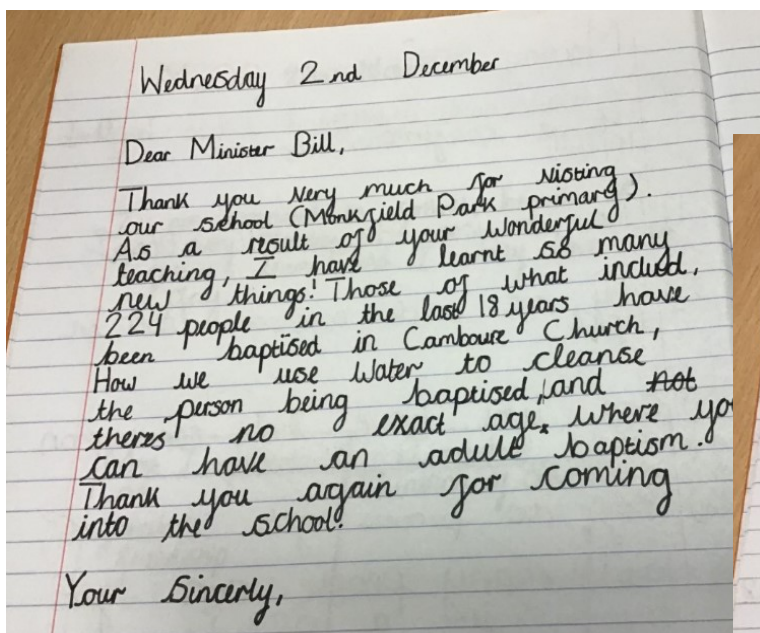 Wednesday 2nd December
Dear Minister Bill,
Thank you very much for visting
our school (Monkfield Park primary).
As a result of your wonderful
teaching, I have learnt so many
new things! Those of what inclued,
224 people in the last 18 years have
been baptised in Camboure Church,
How we use water to cleanse
the person being baptised, and not
theres no exact age, where yo
can have an adult baptism.
Thank you again for coming
into the school!
Your Sincerly,